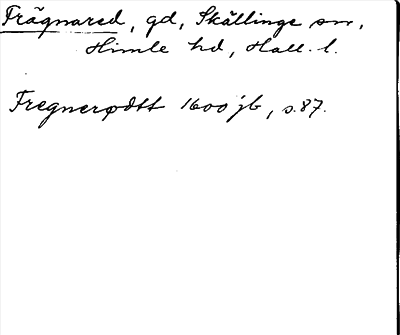 Frägnared, gd, Skällinge sn,
Himle hd, Hall. l.
Fregnerødtt 1600 jb, s. 87.